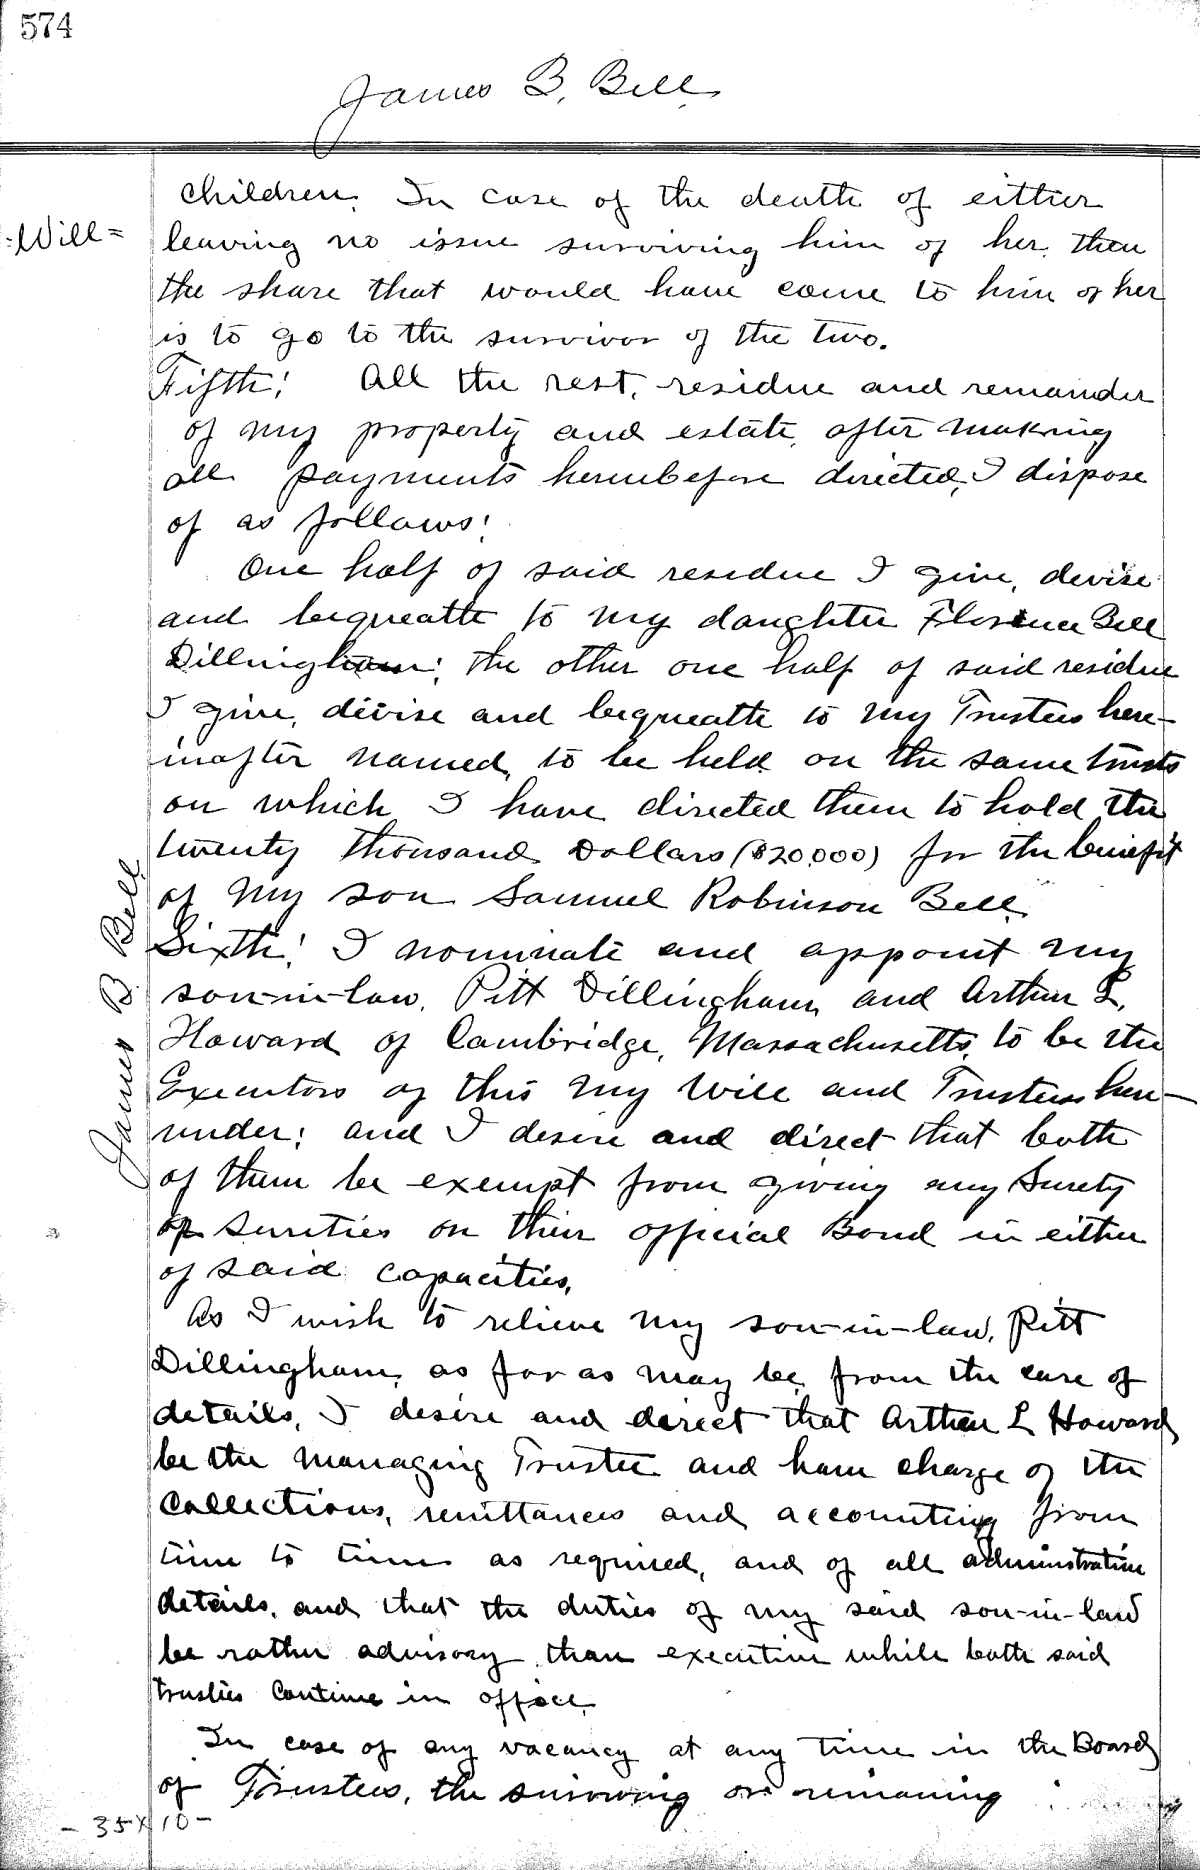 574
James B. Bell
children. In case of the death of either
=Will=
leaving no issue surviving him or her, then
the share that would have come to him or her
is to go to the survivor of the two.
Fifth: All the rest, residue and remainder
of my property and estate, after making
all payments hereinbefore directed, I dispose
of as follows:
One half of said residue I give, devise
and bequeath to my daughter Florence Bell
Dillingham; the other one half of said residue
I give, devise and bequeath to my Trustees here-
inafter named, to be held on the same trusts
on which I have directed them to hold the
twenty thousand Dollars ($20,000) for the benefit
of my son Samuel Robinson Bell.
Sixth: I nominate and appoint my
son-in-law, Pitt Dillingham, and Arthur L.
Howard of Cambridge, Massachusetts, to be the
Executors of this my Will and Trustees here-
under; and I desire and direct that both
of them be exempt from giving any Surety
or sureties on their official Bond in either
of said capacities.
James B Bell
As I wish to relieve my son-in-law, Pitt
Dillingham, as far as may be, from the care of
details, I desire and direct that Arthur L Howard
be the managing Trustee and have charge of the
collections, remittances and accounting from
time to time as required, and of all administrative
details, and that the duties of my said son-in-law
be rather advisory than executive while both said
trustees continue in office.
In case of any vacancy at any time in the Board
of Trustees, the surviving or remaining
- 35 x 10 -